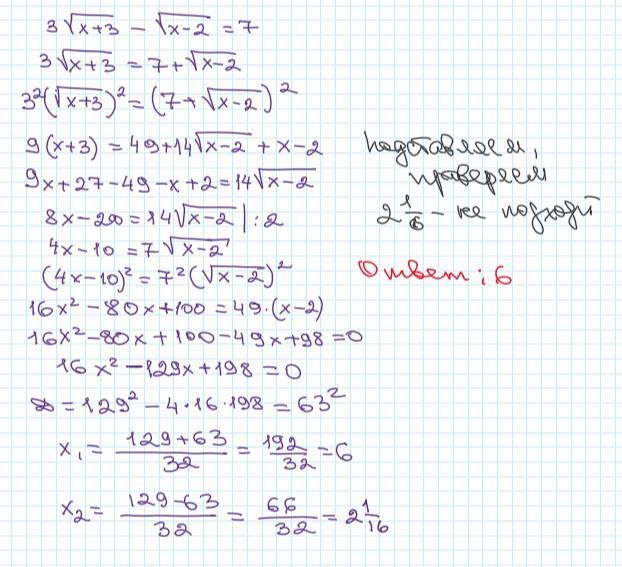 3√(x+3) − √(x−2) = 7
3√(x+3) = 7+√(x−2)
3²(√(x+3))² = (7+√(x−2))²
9(x+3) = 49+14√(x−2) + x−2
9x+27−49−x+2 = 14√(x−2)
8x−20 = 14√(x−2) | :2
4x−10 = 7√(x−2)
(4x−10)² = 7²(√(x−2))²
16x²−80x+100 = 49·(x−2)
16x²−80x+100−49x+98=0
16x²−129x+198=0
D = 129²−4·16·198 = 63²
x₁ = (129+63)/32 = 192/32 = 6
x₂ = (129−63)/32 = 66/32 = 2 1/16
Подставляем,
проверяем
2 1/6 − не подходит
Ответ: 6